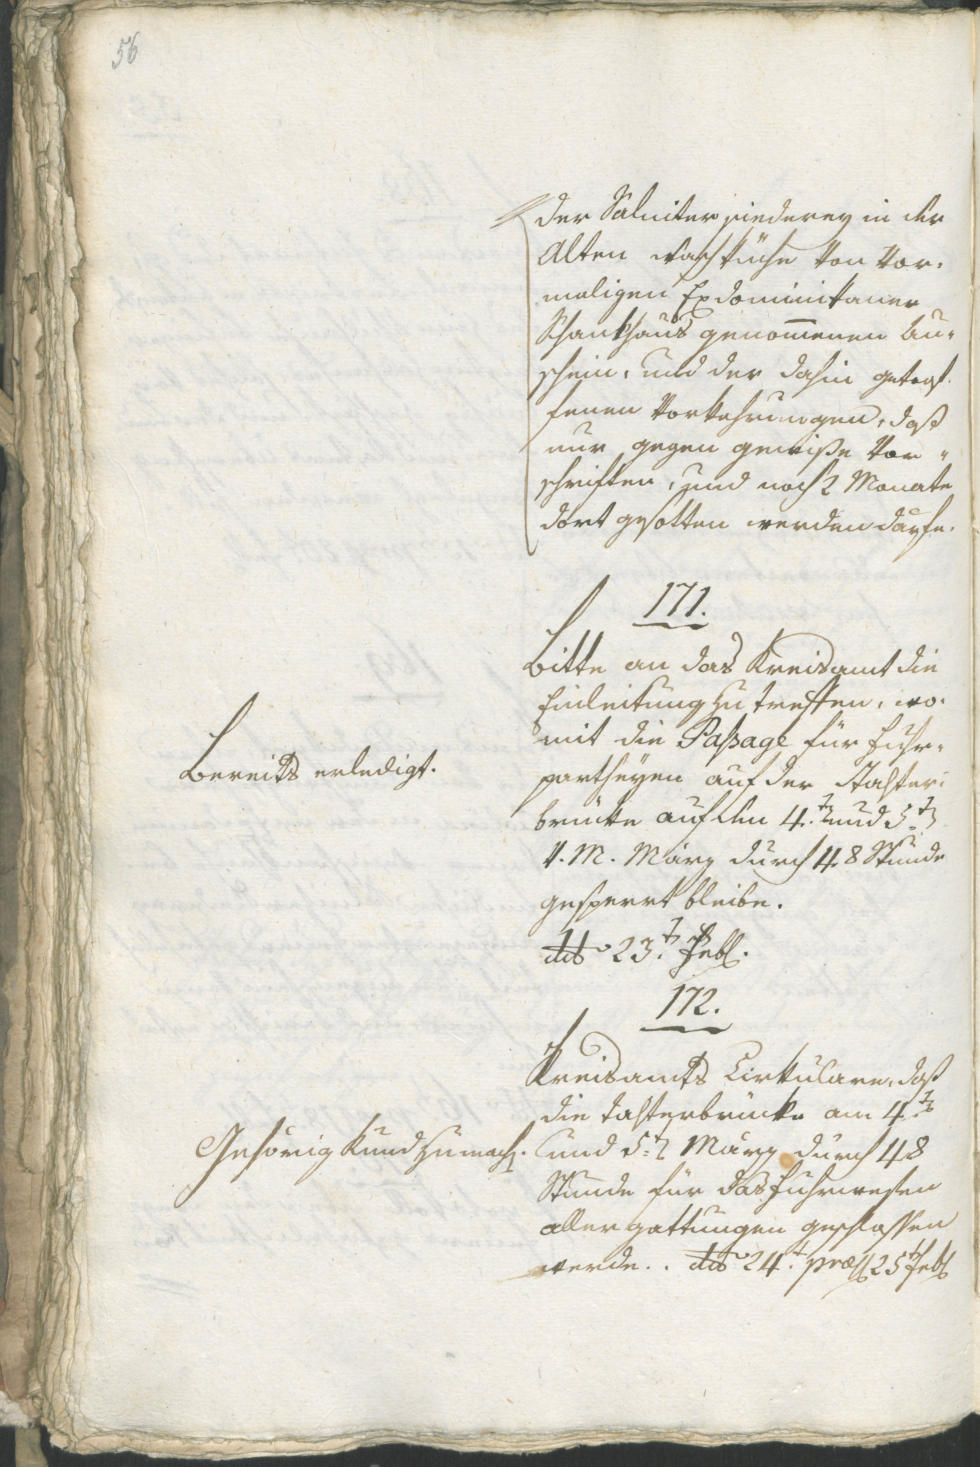 56
der Saliter siederey in der
Alten waschküche von vor-
maligen Exdominikaner
Schankhaus genommenen Au-
schein, und der dahin getrof-
fenen Vorkehrungen, daß
nur gegen gewiße Vor-
schriften, und noch 2 Monate
dort gesotten werden dürfe.
171.
Bitte an das Kreisamt die
Einleitung zu treffen, wo-
mit die Paßage für Fuhr-
partheyen auf der
brücke auf den 4.t und 5.t
k. M. März durch 48 Stunde
gesperrt bleibe.
dto 23.t Febr.
Bereits erledigt.
172.
Kreisamts Cirkulare, daß
die Tafterbrücke am 4.t
und 5.t März durch 48
Stunde für das Fuhrwesen
aller gattungen geschlossen
werde.. dto 24.t præs 25t Febr
Gehörig Kund zu mach.